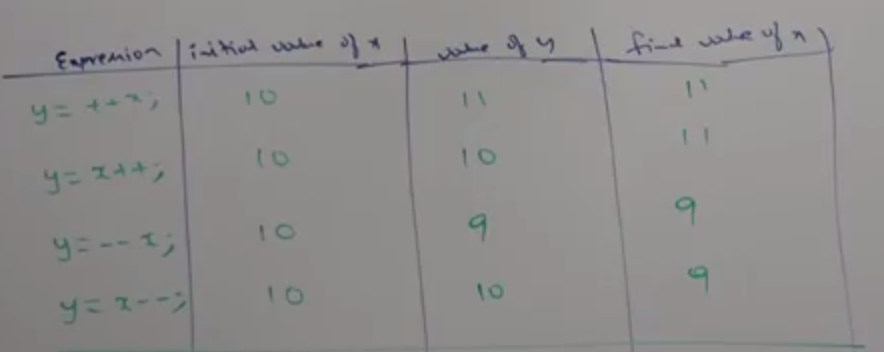 Expression initial value of x value of y final value of x
y = ++x; 10 11 11
y = x++; 10 10 11
y = --x; 10 9 9
y = x--; 10 10 9